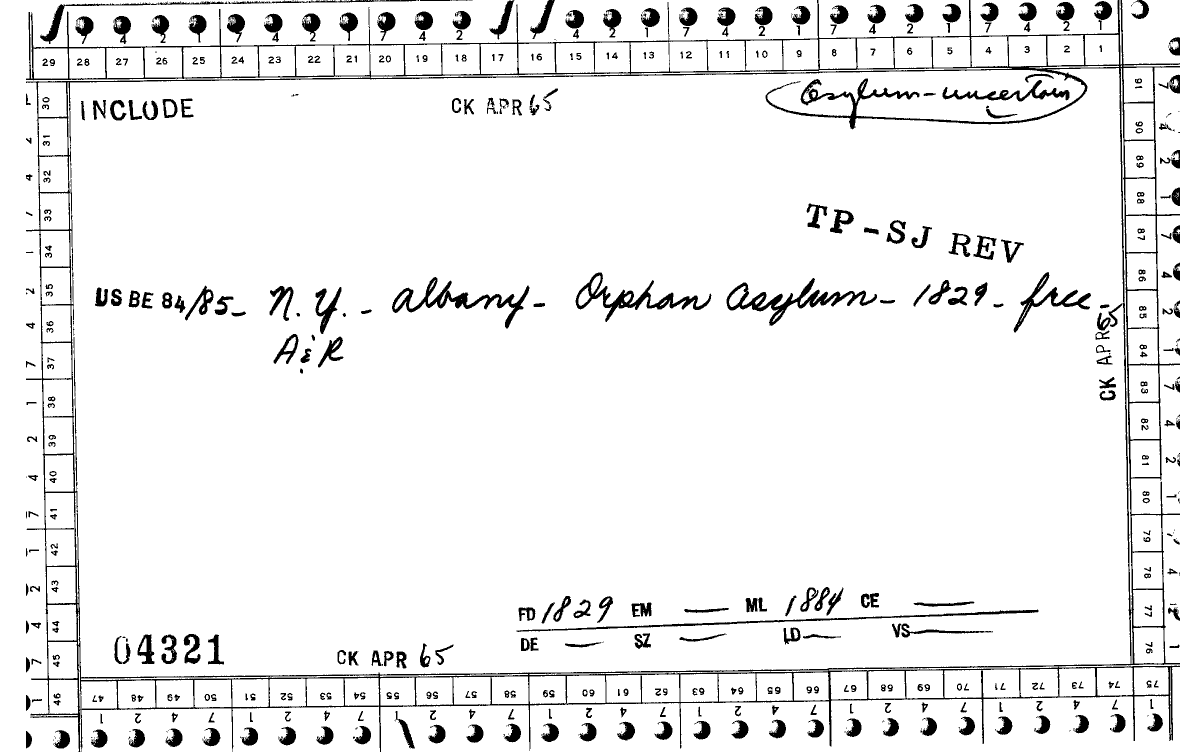 7 4 2 1 7 4 2 1 7 4 2 4 2 1 7 4 2 1 7 4 2 1 7 4 2 1
29 28 27 26 25 24 23 22 21 20 19 18 17 16 15 14 13 12 11 10 9 8 7 6 5 4 3 2 1
INCLUDE CK APR 65 Asylum-uncertain
TP-SJ REV
US BE 84/85- N.Y. - Albany- Orphan Asylum- 1829- free-
A & R
CK APR 65
FD 1829 EM — ML 1884 CE —
DE — SZ — LD — VS —
04321 CK APR 65
30
31
32
33
34
35
36
37
38
39
40
41
42
43
44
45
46
91
90
89
88
87
86
85
84
83
82
81
80
79
78
77
76
47 48 49 50 51 52 53 54 55 56 57 58 59 60 61 62 63 64 65 66 67 68 69 70 71 72 73 74 75
1 2 4 7 1 2 4 7 2 4 7 1 2 4 7 1 2 4 7 1 2 4 7 1 2 4 7 1